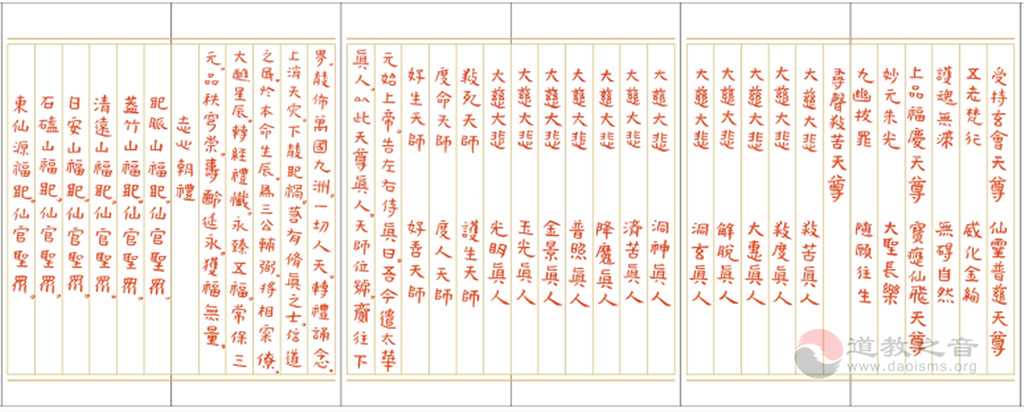 受持玄會天尊　仙靈普慈天尊
五老梵行　威化金絢
護魂無深　無碍自然
上品福慶天尊　寶應仙飛天尊
妙元朱光　大聖長樂
九幽拔罪　隨願往生
尋聲救苦天尊
大慈大悲　救苦眞人
大慈大悲　救度眞人
大慈大悲　大惠眞人
大慈大悲　解脫眞人
大慈大悲　洞玄眞人
大慈大悲　洞神眞人
大慈大悲　濟苦眞人
大慈大悲　降魔眞人
大慈大悲　普照眞人
大慈大悲　金景眞人
大慈大悲　玉光眞人
大慈大悲　光明眞人
救死天師　護生天師
度命天師　度人天師
好生天師　好善天師
元始上帝。告左右侍眞曰吾今遣太華
眞人。以此天尊眞人。天師位號。齎往下
界。佈萬國九洲。一切人天。轉禮誦念。
上消天灾。下地禍。若有脩眞之士信道
之民。於本命生辰。爲三公輔弼。將相寀僚。
大醮星辰。轉經禮懺。永臻五福。常保三
元。品秩穹崇。壽齡延永。獲福無量。
志心朝禮
地脈山福地。仙官聖眾。
蓋竹山福地。仙官聖眾。
清遠山福地。仙官聖眾。
日安山福地。仙官聖眾。
石磕山福地。仙官聖眾。
東仙源福地。仙官聖眾。
道教之音
www.daoisms.org